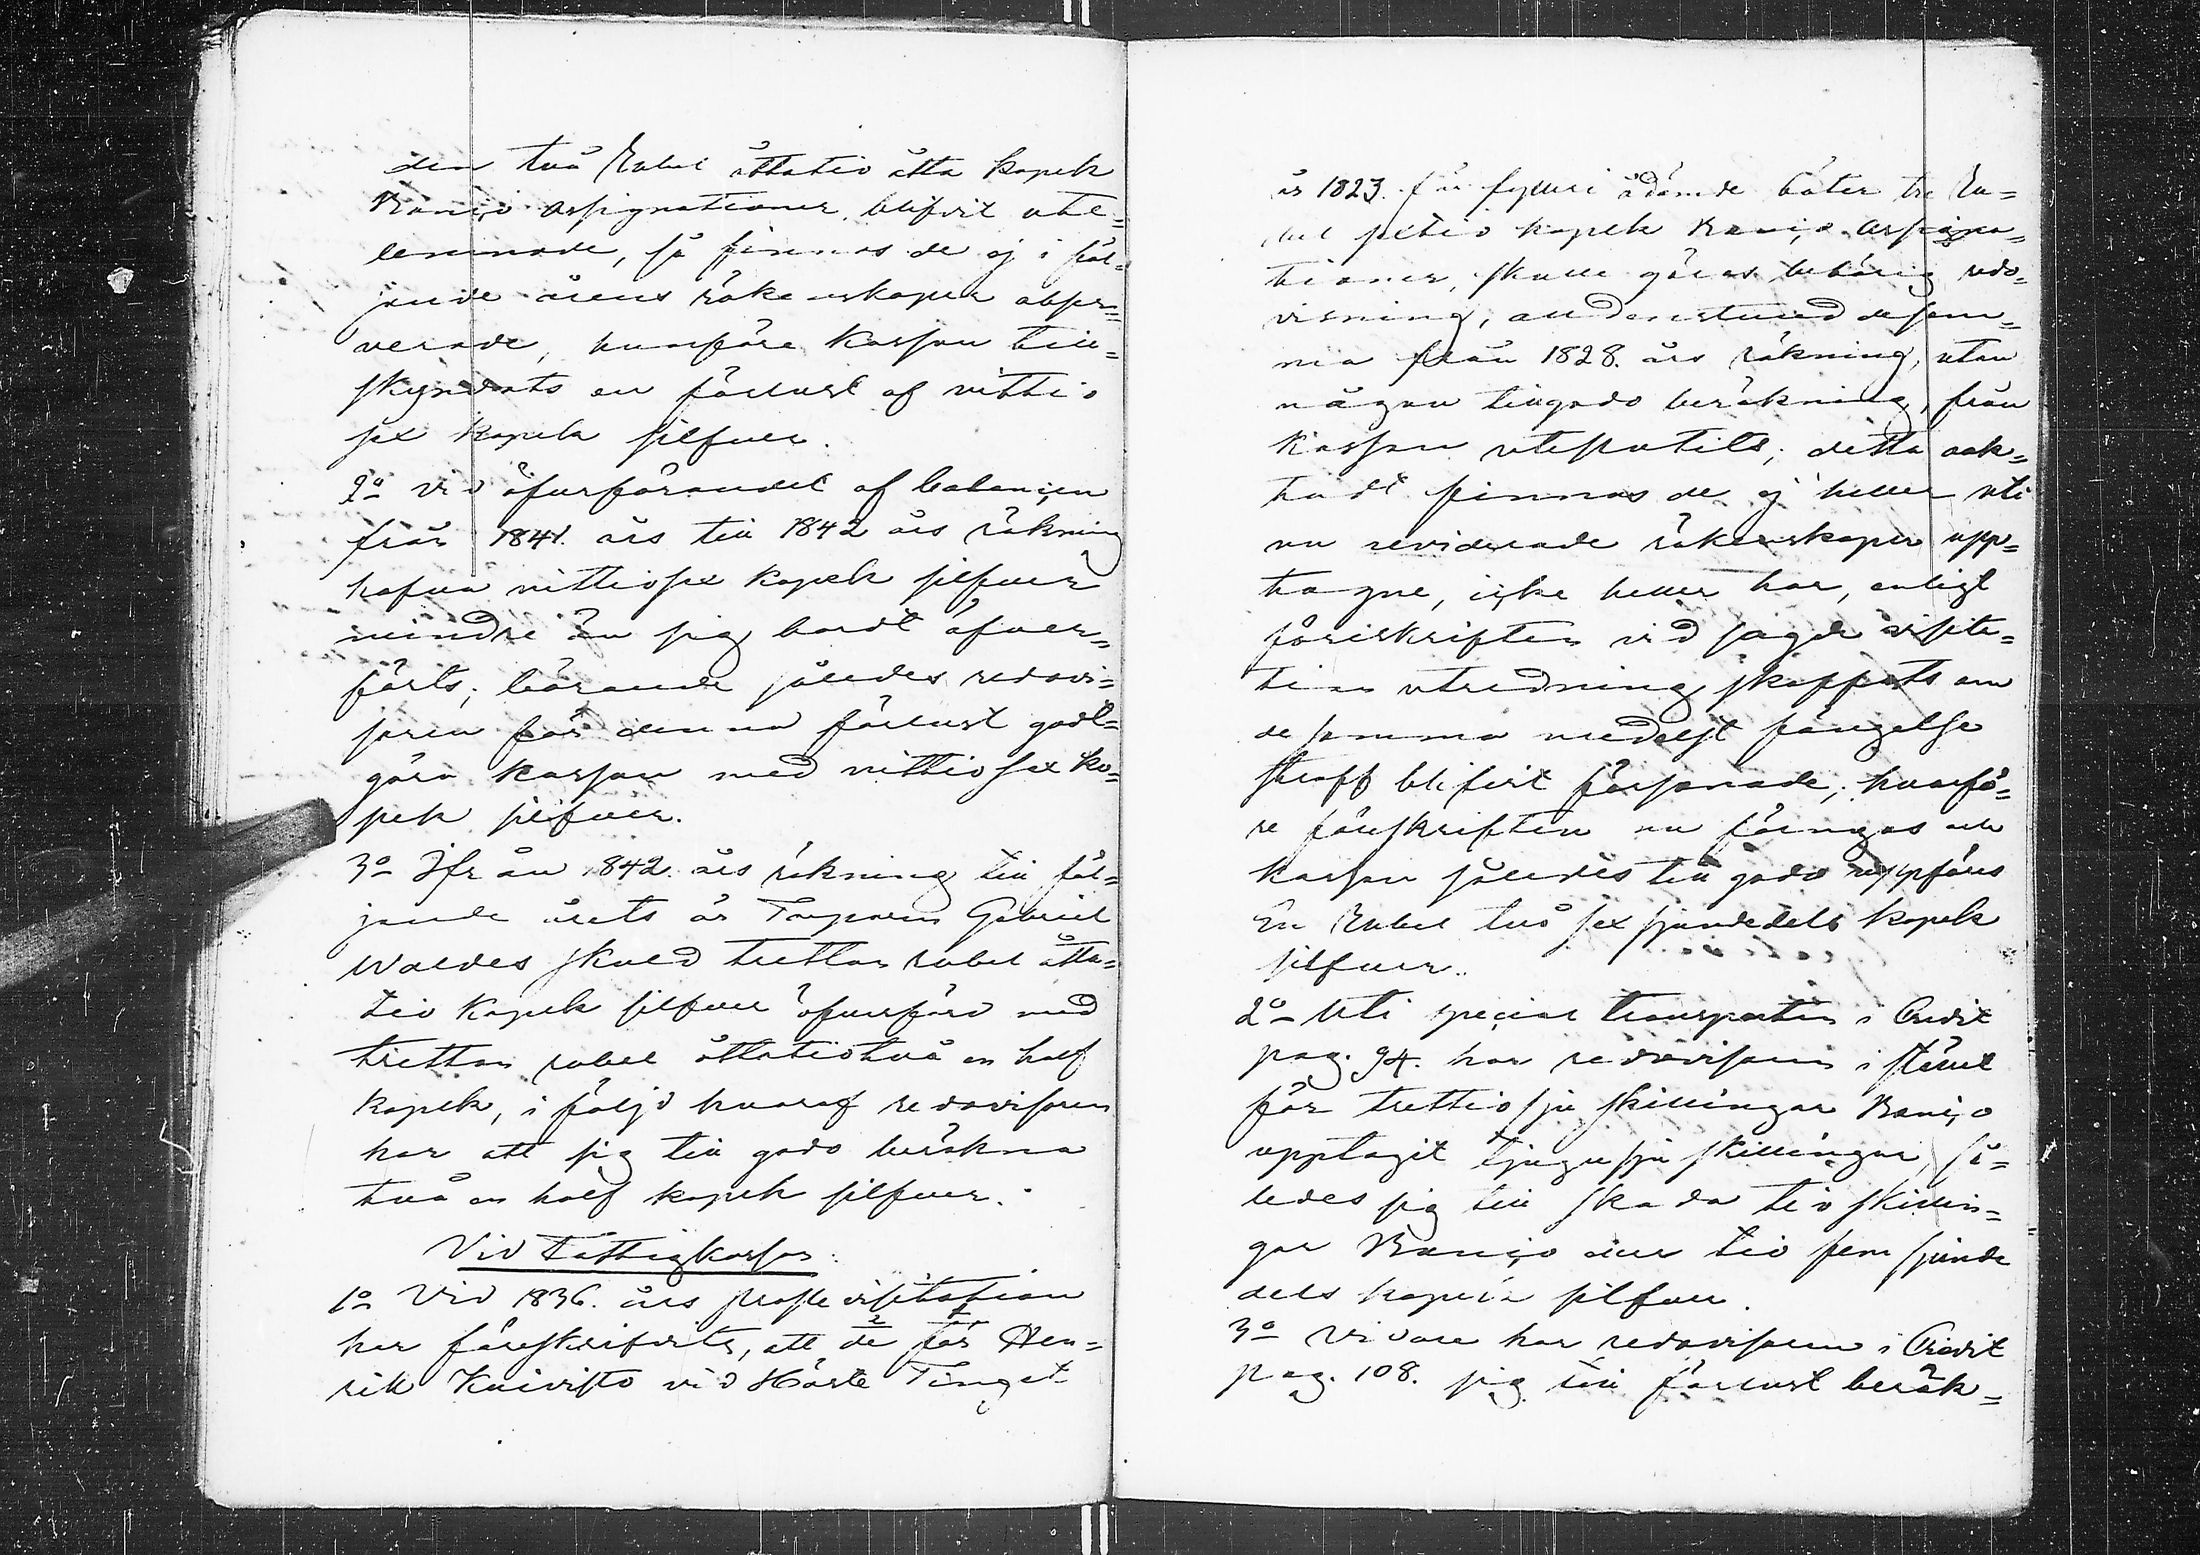 den två Rubel åttatio åtta kopek
Banco Assignationer, blifvit ute=
lemnade, så finnas de ej i föl=
jande årens räkenskaper obser=
verade, hvarföre kassan till=
skyndats en förlust af nittio
sex kopek silfver.
2o vid öfverförandet af balancen
från 1841. års till 1842 års räkning
hafva nittiosex kopek silfver
mindre än sig bordt öfver=
förts; börande således redovi=
soren för denna förlust godt=
göra kassan med nittiosex ko=
pek silfver.
3o Ifrån 1842. års räkning till föl=
jande årets är Torparen Gabriel
Waldes skuld tretton rubel åtta=
tio kopek silfver öfverförd med
tretton rubel åttatiotvå en half
kopek, i följd hvaraf redovisoren
har att sig till godo beräkna
två en half kopek silfver.
Vid Fattigkassan.
1o Vid 1836. års prostevisitation
har föreskrifvits, att de för Hen=
rik Knivisto vid Höste Tinget
år 1823. för fylleri ådömde böter tre Ru=
bel sextio kopek Banco Assigna=
tioner, skulle göras behörig redo=
visning, alldenstund desam=
ma från 1828. års räkning, utan
någon tillgodo beräkning, från
kassan uteslutits; detta oak=
tadt finnas de ej heller uti
nu reviderade räkenskaper upp=
tagne, icke heller har, enligt
föreskriften vid sagde visita=
tion utredning skaffats om
desamma medelst fängelse
straff blifvit försonade; hvarfö=
re föreskriften nu förnyas och
kassan således till godo uppföres
En Rubel två sex sjundedels kopek
silfver.
2o Uti special transporten i Credit
pag. 94. har redovisoren i stället
för trettiosju skillingar Banco
upptagit tjugusju skillingar, så=
ledes sig till skada tio skillin=
gar Banco eller tio fem sjunde
dels kopek silfver.
3o Vidare har redovisoren i Credit
pag. 108. sig till förlust beräk=